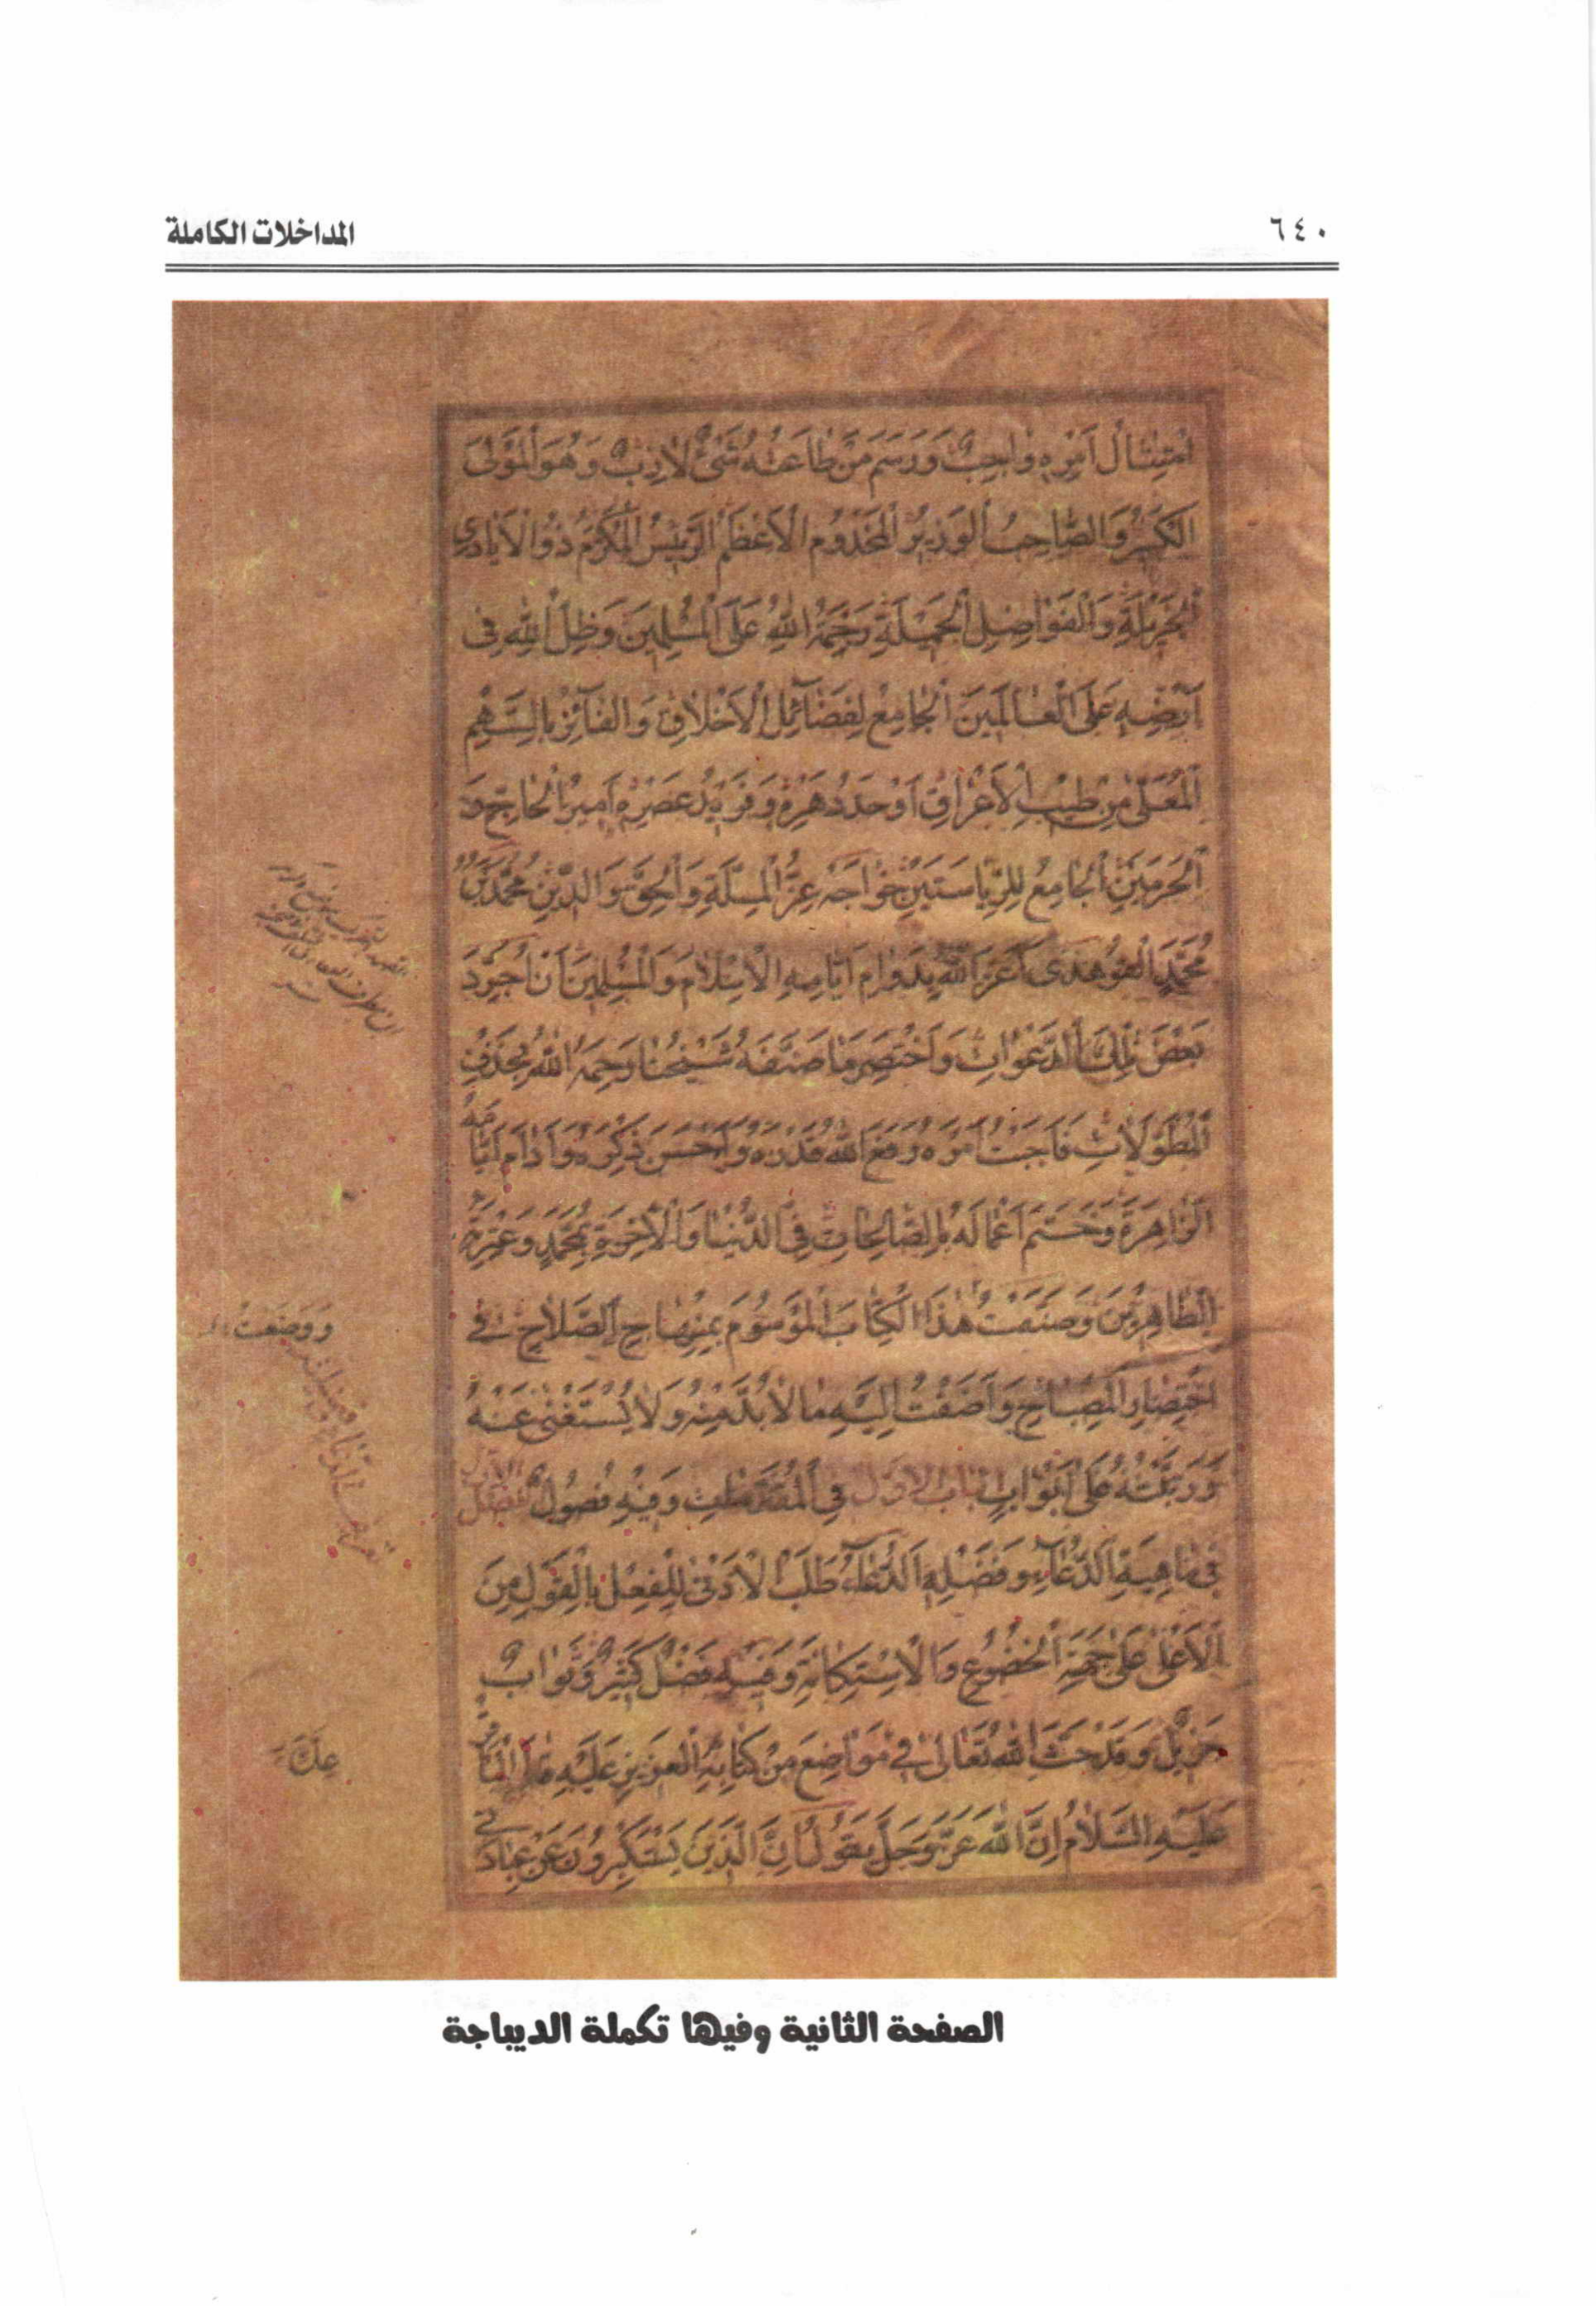 ٦٤٠
المداخلات الكاملة
اِمْتِثالُ اَمْرِهِ واجِبٌ وَرَسَمَ مَنْ طاعَتُهُ شَىْءٌ لازِبٌ وَهُوَ الْمَوْلَى
الْكَبيرُ وَالصّاحِبُ الْوَزيرُ الْمَخْدُومُ الْاَعْظَمُ الرَّئيسُ الْمُكَرَّمُ ذُو الْاَيادِى
الْجَزيلَةِ وَالْفَواضِلِ الْجَميلَةِ رَحْمَةُ اللهِ عَلَى الْمُسْلِمينَ وَظِلُّ اللهِ فى
اَرْضِهِ عَلَى الْعالَمينَ الْجامِعُ لِفَضآئِلِ الْاَخْلاقِ وَالْفائِزُ بِالسَّهْمِ
الْمُعَلّى مِنْ طيبِ الْاَعْراقِ اَوْحَدُ دَهْرِهِ وَفَريدُ عَصْرِهِ اَميرُ الْحاجِّ وَ
الْحَرَمَيْنِ الْجامِعُ لِلرِّياسَتَيْنِ خواجَه عِزُّ الْمِلَّةِ وَالْحَقِّ وَالدّينِ مُحَمَّدُ بْنُ
مُحَمَّدٍ اَعَزَّ اللهُ بِدَوامِ اَيّامِهِ الْاِسْلامَ وَالْمُسْلِمينَ اَنْ اُجَرِّدَ
بَعْضَ تِلْكَ الدَّعَواتِ وَاَخْتَصِرَ ما صَنَّفَهُ شَيْخُنا رَحِمَهُ اللهُ بِحَذْفِ
الْمُطَوَّلاتِ فَاَجَبْتُ اَمْرَهُ رَفَعَ اللهُ قَدْرَهُ وَاَحْسَنَ ذِكْرَهُ وَاَدامَ اَيّامَهُ
الزّاهِرَةَ وَخَتَمَ اَعْمالَهُ بِالصّالِحاتِ فِى الدُّنْيا وَالْاخِرَةِ بِمُحَمَّدٍ وَعِتْرَتِهِ
الطّاهِرينَ وَصَنَّفْتُ هذَا الْكِتابَ الْمَوْسُومَ بِمِنْهاجِ الصَّلاحِ فى
اخْتِصارِ الْمِصْباحِ وَاَضَفْتُ اِلَيْهِ ما لا بُدَّ مِنْهُ وَلا يُسْتَغْنى عَنْهُ
وَرَتَّبْتُهُ عَلى اَبْوابٍ باب الاول فِى الْمُقَدَّماتِ وَفيهِ فُصُولٌ الفصل الاول
فى ماهِيَةِ الدُّعآءِ وَفَضْلِهِ اَلدُّعآءُ طَلَبُ الْاَدْنى لِلْفِعْلِ بِالْقَوْلِ مِنَ
الْاَعْلى عَلى جَهَةِ الْخُضُوعِ وَالْاِسْتِكانَةِ وَفيهِ فَضْلٌ كَثيرٌ وَثَوابٌ
جَزيلٌ وَقَدْ حَثَّ اللهُ تَعالى فى مَواضِعَ مِنْ كِتابِهِ الْعَزيزِ عَلَيْهِ قالَ الْباقِرُ
عَلَيْهِ السَّلامُ اِنَّ اللهَ عَزَّ وَجَلَّ يَقُولُ اِنَّ الَّذينَ يَسْتَكْبِرُونَ عَنْ عِبادَتى
وَوَضَعْتُ
الصفحة الثانية وفيها تكملة الديباجة